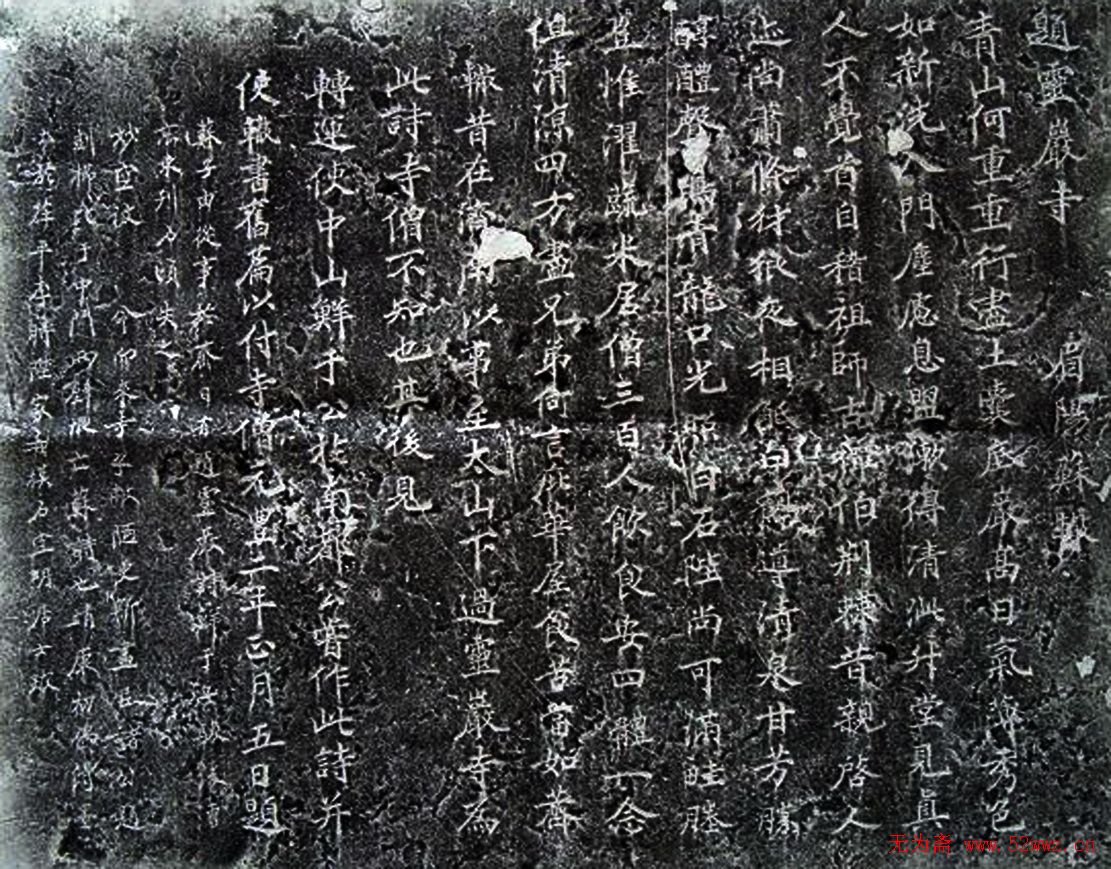 題靈巖寺 眉陽蘇轍
青山何重重行盡土囊底巖高日氣薄秀色
如新洗入門塵慮息盥漱得清泚升堂見真
人不覺首自稽祖師古禪伯荆棘昔親啓人
迹尚蕭條豺狼夜相舐白鶴導清泉甘芳勝
醇醴聲鳴青龍口光照白石陛尚可滿畦塍
豈惟濯蔬米居僧三百人飲食安四體一念
但清涼四方盡兄弟何言庇華屋食苦當如薺
轍昔在濟南以事至太山下過靈巖寺為
此詩寺僧不知也其後見
轉運使中山鮮于公於南都公嘗作此詩并
使轍書舊篇以付寺僧元豐二年正月五日題
蘇子由從事於齊日有過靈巖詩鮮于
失之
无为斋 www.52wwz.cn